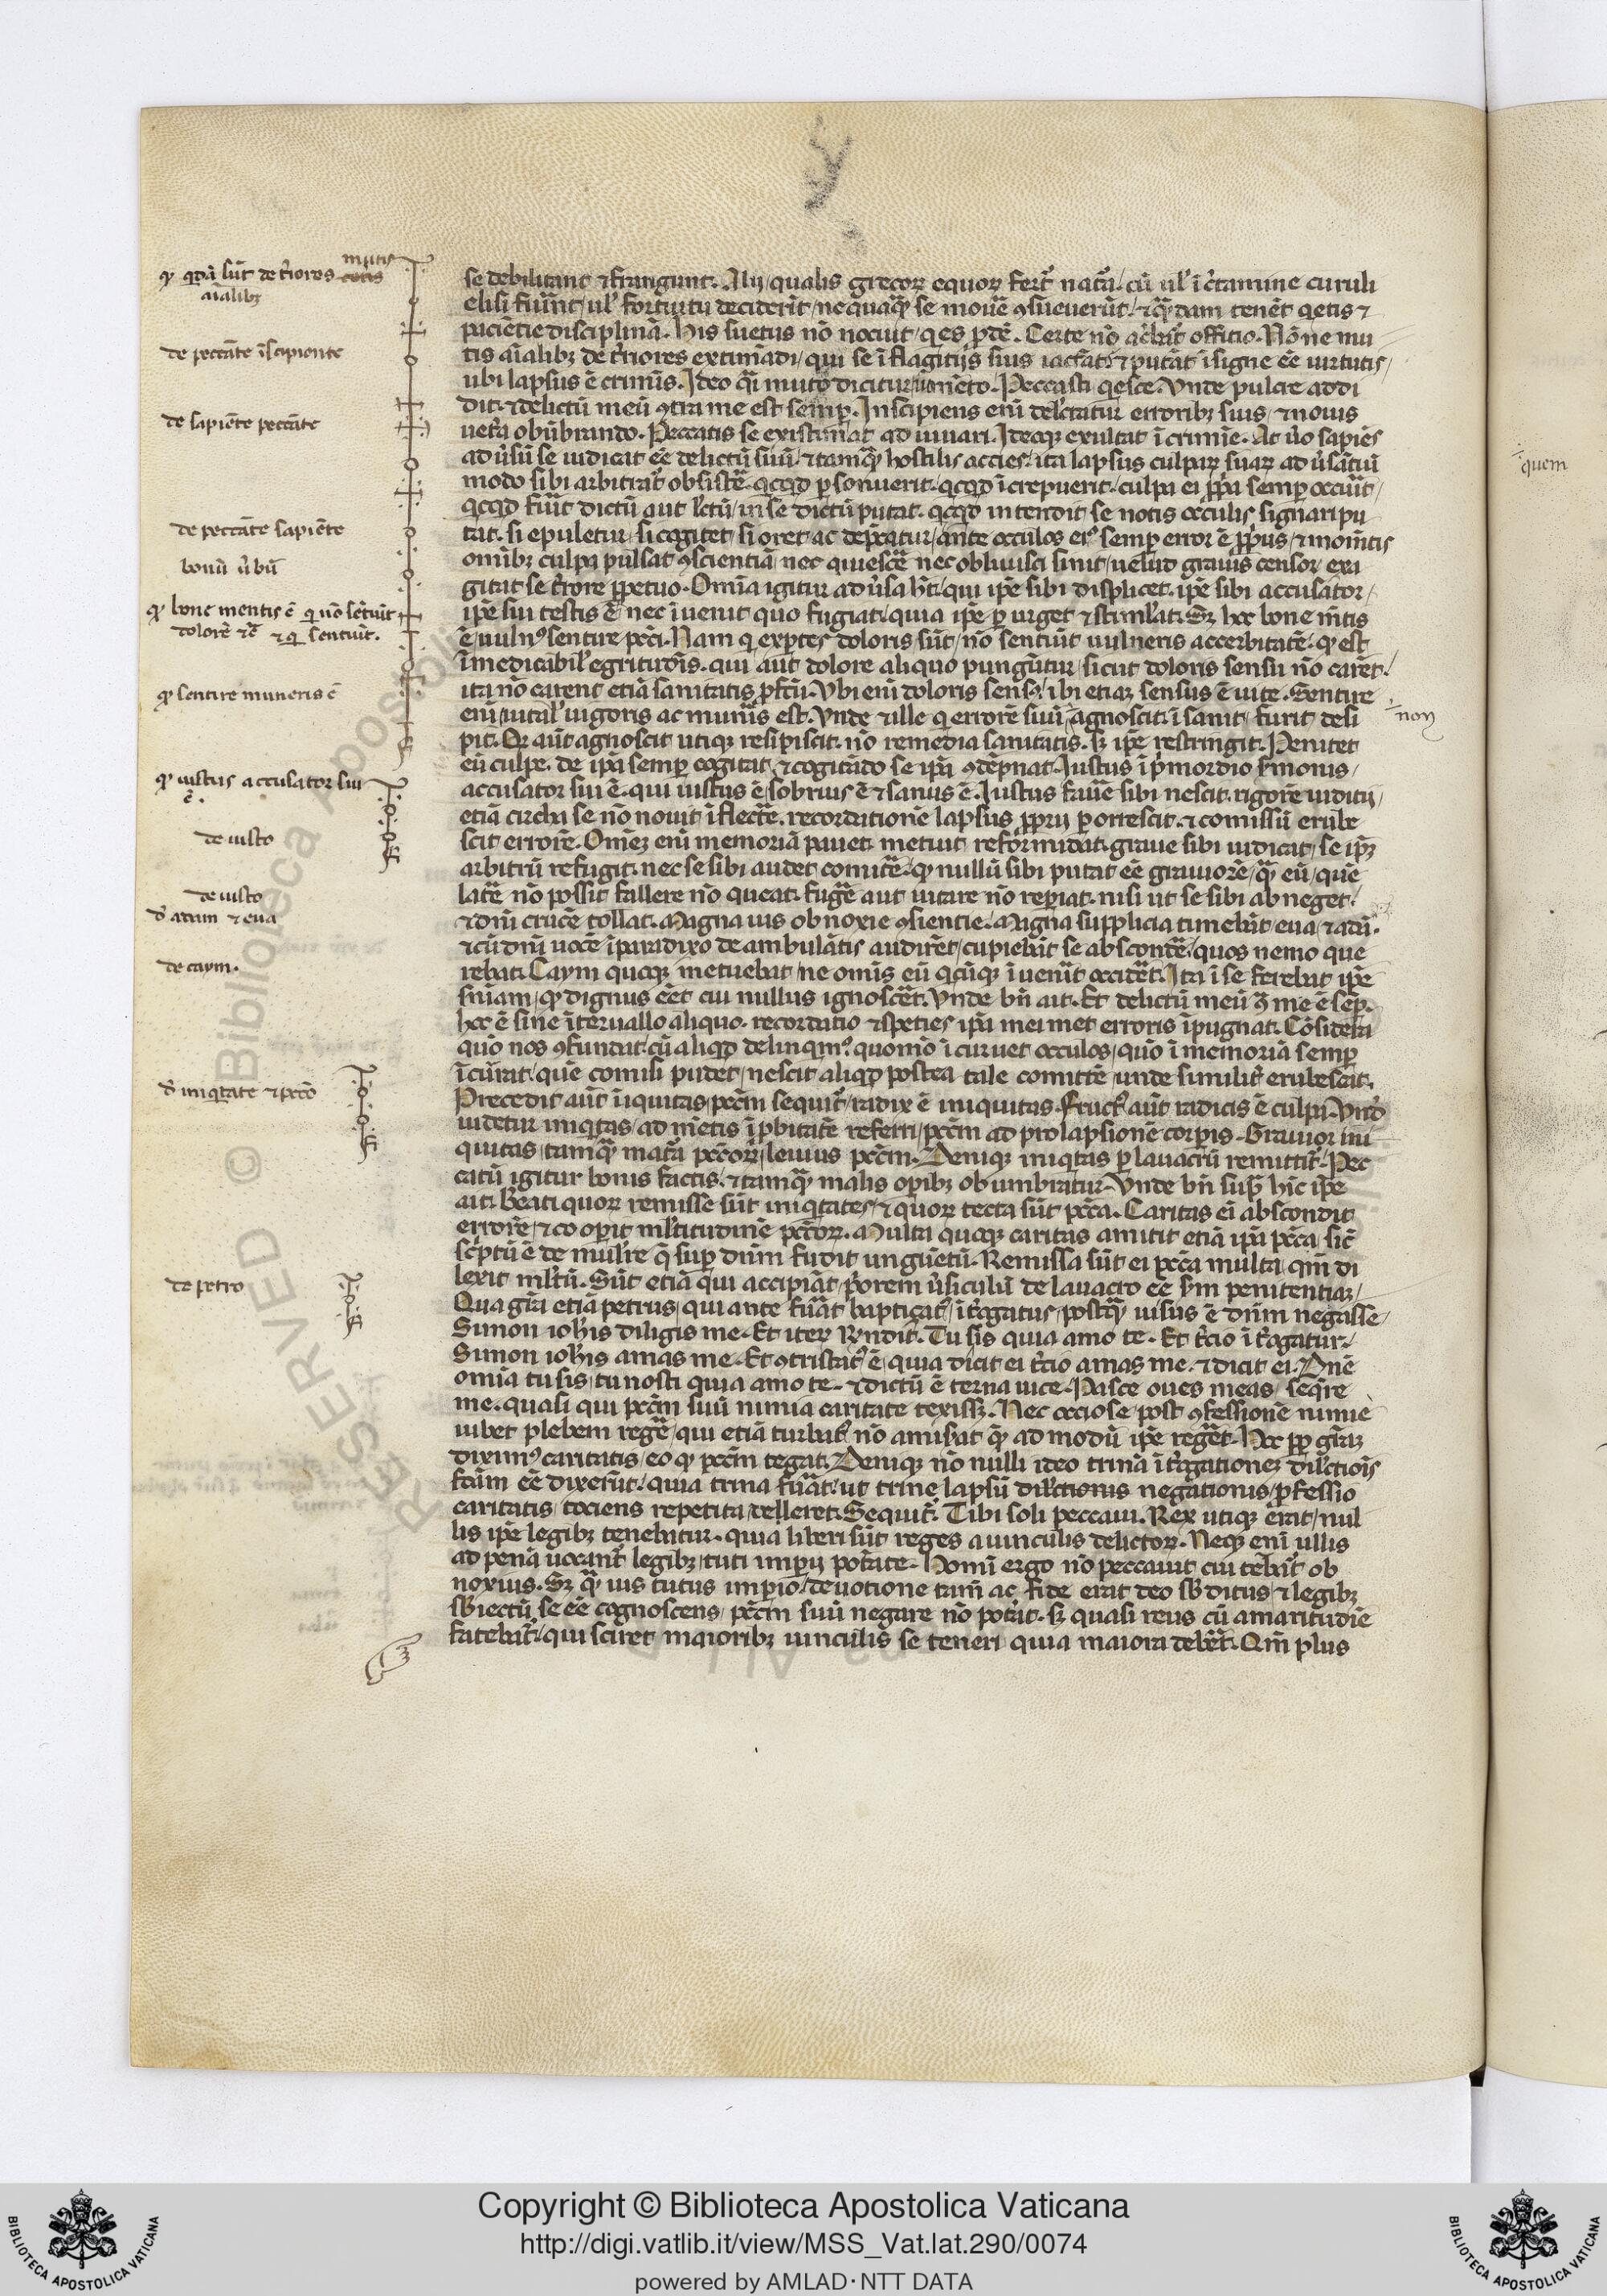 se debilitant ⁊ frangunt. Alij / qualis grecoꝝ equoꝝ fert᷑ nat᷑a / cū ul' ī c̄tamine curuli
elisi fuint / ul' fortuitu deciderīt / nequaqͣ se mouē ꝯsueuerūt / ⁊ qͣdam tenēt qetis ⁊
paciētie disciplinā. His suetus nō nocuit / qes ꝓdē. Certe nō ac̄bat᷑ officio. Nōne mu
tis aīalibꝫ det̄iores extimādi / qui se ī flagitijs suis iactāt / ⁊ putāt īsigne eē uirtutis /
ubi lapsus ē crimīs. Ideo qͣi muto dicitur iumēto. Peccasti qesce. Vnde pulcre addi
dit. ⁊ delictū meū ꝯtra me est semꝑ. Inscipiens enī delectatur erroribꝫ suis / ⁊ nouis
uet̄a obūbrando. Peccatis se existimat adiuuari. Ideoqꝫ exultat ī crimīe. At ůo sapiēs
ad ůsū se iudicat eē delictū suū / ⁊ tamqͣ hostilis accies / ita lapsus culpaꝝ suaꝝ ad ůsātiū
modo sibi arbitrat᷑ obsistē. qcqd ꝑsonuerit. qcqd īcrepuerit. culpa ei ꝓpa semꝑ occurit /
qcqd fuit dictū aut lectū / in se dictū putat. qcqd intendit se notis occulis signari pu
tat. si epuletur / si cogitet / si oret ac depͣcatur / ante occulos eiꝰ semꝑ error ē ꝓpus / ⁊ momētis
omibꝫ culpa pulsat ꝯscientiā / nec quiescē nec obliuisci sinit / uelud grauis censor exa
gitat se t̄rore ꝑpetuo. Omīa igitur aduůsa ht / qui ipē sibi displicet. ipē sibi accusator /
ipē sui testis ē / nec ī uenit quo fugiat / quia ipē ꝑurget ⁊ stimlat. Sꝫ hec bone mītis
ē / uulnꝰ sentire pcci. Nam q exꝑtes doloris sūt / nō sentiūt uulneris accerbitatē. qͦ est
īmedicabil' egritudīs. qui aut dolore aliquo pungūtur / sicut doloris sensu nō carēt /
ita nō carent etiā sanitatis ꝓfcū. Vbi enī doloris sensꝰ / ibi etiaꝫ sensus ē uite. Sentire
enī / uital' uigoris ac munīs est. Vnde ⁊ ille q errorē suū / agnoscit / ī sanit / furit desi
pit. Qr aūt agnoscit utiqꝫ resipiscit. nō remedia sanitatis. sꝫ ipē restringit. Penitet
eū culpe. de ipā semꝑ cogitat / ⁊ cogitādo se ipm̄ ꝯdēpnat. Iustus ī pͥmordio s̄monis /
accusator sui ē. qui iustus ē / sobrius ē ⁊ sanus ē. Iustus fauē sibi nescit. rigorē iuditij /
etiā circha se nō nouit īflectē. recordationē lapsus ꝓprij ꝑorrescit. ⁊ comissū erube
scit errorē. Omēꝫ enī memoriā pauet metuit reformidat. graue sibi iudicat / se ipꝫ
arbitrū refugit. nec se sibi audet comitē. qͦ nullū sibi putat eē grauiorē / qͣ eū / quē
latē nō possit fallere nō queat. fugē aut uitare nō reperiat. nisi ut se sibi abneget /
⁊ dnī crucē tollat. Magna uis obnoxie ꝯsientie. Magna supplicia timebāt eua ⁊ adā.
⁊ cū dnī uocē ī paradixo deambulātis audirēt / cupiebāt se abscondē / quos nemo que
rebat. Caym quoqꝫ metuebat / ne omīs eū qcūqꝫ ī uenīt occidēt. Ita ī se ferebat ipē
sniam / qͦ dignus eēt cui nullus ignoscēt. Vnde bn̄ ait. Et delictū meū ꝯ me ē sēp.
hec ē sine īteruallo aliquo. recordatio ⁊ species ipā mei met erroris īpugnat. Cōsidera
quō nos ꝯfundat / cū aliqd delinqimꝰ. quomō īcuruet occulos / quō ī memoriā semꝑ
īcurat / quē comissi pudet / nescit aliqd postea tale comittē / unde similit̄ erubescāt.
Precedit aūt iniquitas / pccm̄ sequit᷑ / radix ē iniquitas. fructꝰ aūt radicis ē culpa. Vnd'
uidetur iniqtas / ad mētis ī ꝓbitatē referri / pccm̄ ad prolapsionē corpis. Grauior ini
quitas / tamqͣ mat̄ia pccōꝝ / leuius pccm̄. Deniqꝫ iniqtas ꝑ lauacrū remittit᷑. Pec
catū igitur bonis factis / ⁊ tamqͣ malis oꝑibꝫ obumbratur. Vnde bn̄ supͣ hīc ipē
ait. Beati quoꝝ remisse sūt iniqtates / ⁊ quoꝝ tecta sūt pccā. Caritas eī abscondit
errorē / ⁊ cooꝑit mltitudinē pccōꝝ. Multa quoqꝫ caritas amitit etiā ipā pccā / sic̄
sc̄ptū ē de mulīe q̄ suꝑ dnm fudit unguētū. Remissa sūt ei pccā multa / qm̄ di
lexit mltū. Sūt etiā qui accipiāt / pͥorem ůsiculū de lauacro eē sꝫm penitentiaꝫ /
Qua gr̄a etiā petrus / qui ante fuāt baptiçatꝰ / īt̄ogatus / postqͣ uisus ē dnm negasse /
Simon ioħis diligis me. Et iteꝝ Rn̄dit. Tu sis quia amo te. Et t̄cio īt̄ogatur /
Simon ioħis amas me. Et ꝯtristatꝰ ē / quia dicit ei t̄cio amas me. ⁊ dicit ei. Dn̄e
omīa tu sis / tu nosti quia amo te. ⁊ dictū ē terna uice. Pasce oues meas / seqre
me. quasi qui pccm̄ suū nimia caritate texisꝫ. Nec occiose / post ꝯfessionē nimie
iubet plebem regē / qui etiā turbatꝰ nō amisāt qͣ ad modū ipē regēt. Hec ꝓp gr̄aꝫ
diximꝰ caritatis / eo qͦ pccm̄ tegat. Deniqꝫ nō nulli ideo trinā īt̄ogationeꝫ dilectiōis
fcām eē dixerūt / quia trina fuāt / ut trine lapsū dilectionis negationis / ꝓfessio
caritatis / tociens repetita delleret. Sequit᷑. Tibi soli peccaui. Rex utiqꝫ erat / nul
lis ipē legibꝫ tenebatur. quia liberi sūt reges a uinculis delictoꝝ. Neqꝫ enī ullis
ad penā uocant᷑ legibꝫ / tuti imperij potāte. Homī ergo nō peccauit cui tēbat᷑ ob
noxius. Sꝫ qͣuis tutus imperio / deuotione tam̄ ac fide erat deo sb̄ditus / ⁊ legibꝫ
sb̄iectū se eē cognoscens / pccm̄ suū negare nō potāt. sꝫ quasi reus cū amaritudīe
fatebat᷑ / qui sciret maioribꝫ uinculis se teneri quia maiora debēt. Qm̄ plus
qͦ qdā sūt det̄iores mutis
aīalibꝫ
de peccāte īscipiente
de sapiēte peccāte
de peccāte sapiēte
bonū ůbū
qͦ bone mentis ē q nō sētiūt
dolorē ⁊c̄ ⁊ q sentiūt.
qͦ sentire muneris ē
non
qͦ iustus accusator sui
ē.
de iusto
de iusto
d' adam ⁊ eua
de caym.
d' iniqtate ⁊ pccō
de petro
quem
Copyright © Biblioteca Apostolica Vaticana
http://digi.vatlib.it/view/MSS_Vat.lat.290/0074
powered by AMLAD·NTT DATA
BIBLIOTECA APOSTOLICA VATICANA
BIBLIOTECA APOSTOLICA VATICANA